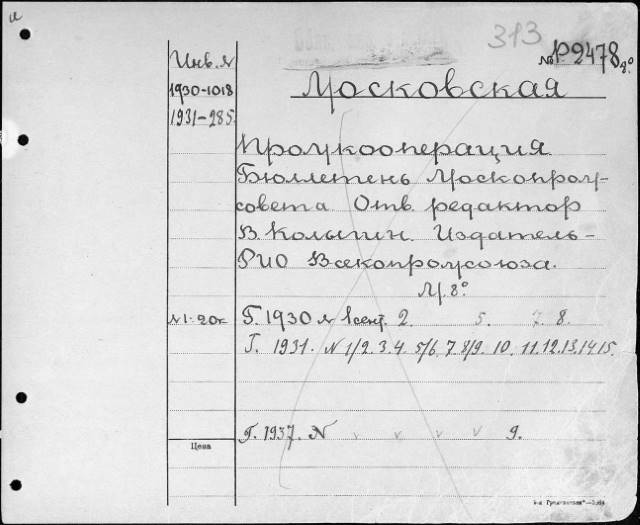 и
313
Инв. №
№ Р2478 4°
1930-1018
Московская
1931-285
Промкооперация
Бюллетень Москопром-
совета Отв. редактор
В. Колыгин. Издатель-
РИО Всекопромсоюза.
М. 8°
№ 1-20к Г. 1930 № 1сент. 2. 5. 7. 8.
Г. 1931. N 1/2. 3. 4. 5/6. 7. 8/9. 10. 11. 12. 13. 14. 15.
Г. 1937. N v v v v 9.
Цена